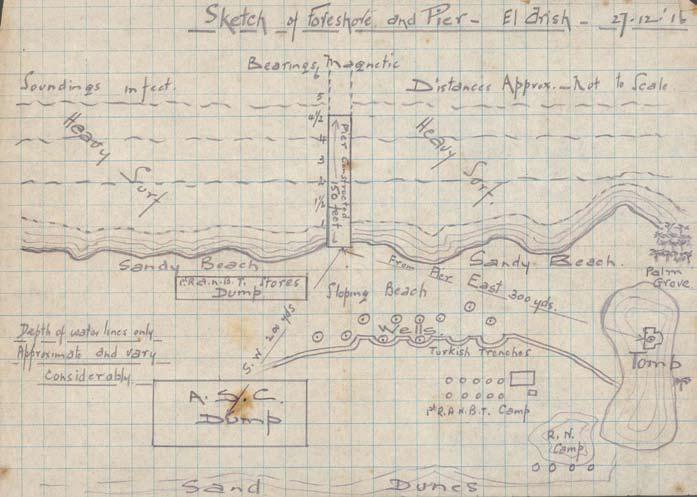 Sketch of Foreshore and Pier - El Arish - 27-12-'16
Bearings Magnetic
Soundings in feet.
Distances Approx. - Not to Scale.
6
5
4 1/2
4
3
2
1 1/2
1
Pier Constructed
150 feet
Heavy
Surf
Heavy
Surf.
Sandy Beach
Sandy Beach.
Palm
Grove
1st R.A.N.B.T. Stores
Dump
From Pier East 300 yds.
Sloping Beach
S.W. 200 yds
Wells.
Turkish Trenches
Tomb
Depth of water lines only
Approximate and vary
Considerably.
A. S. C.
Dump
1st R.A.N.B.T. Camp
R. N.
Camp
Sand Dunes